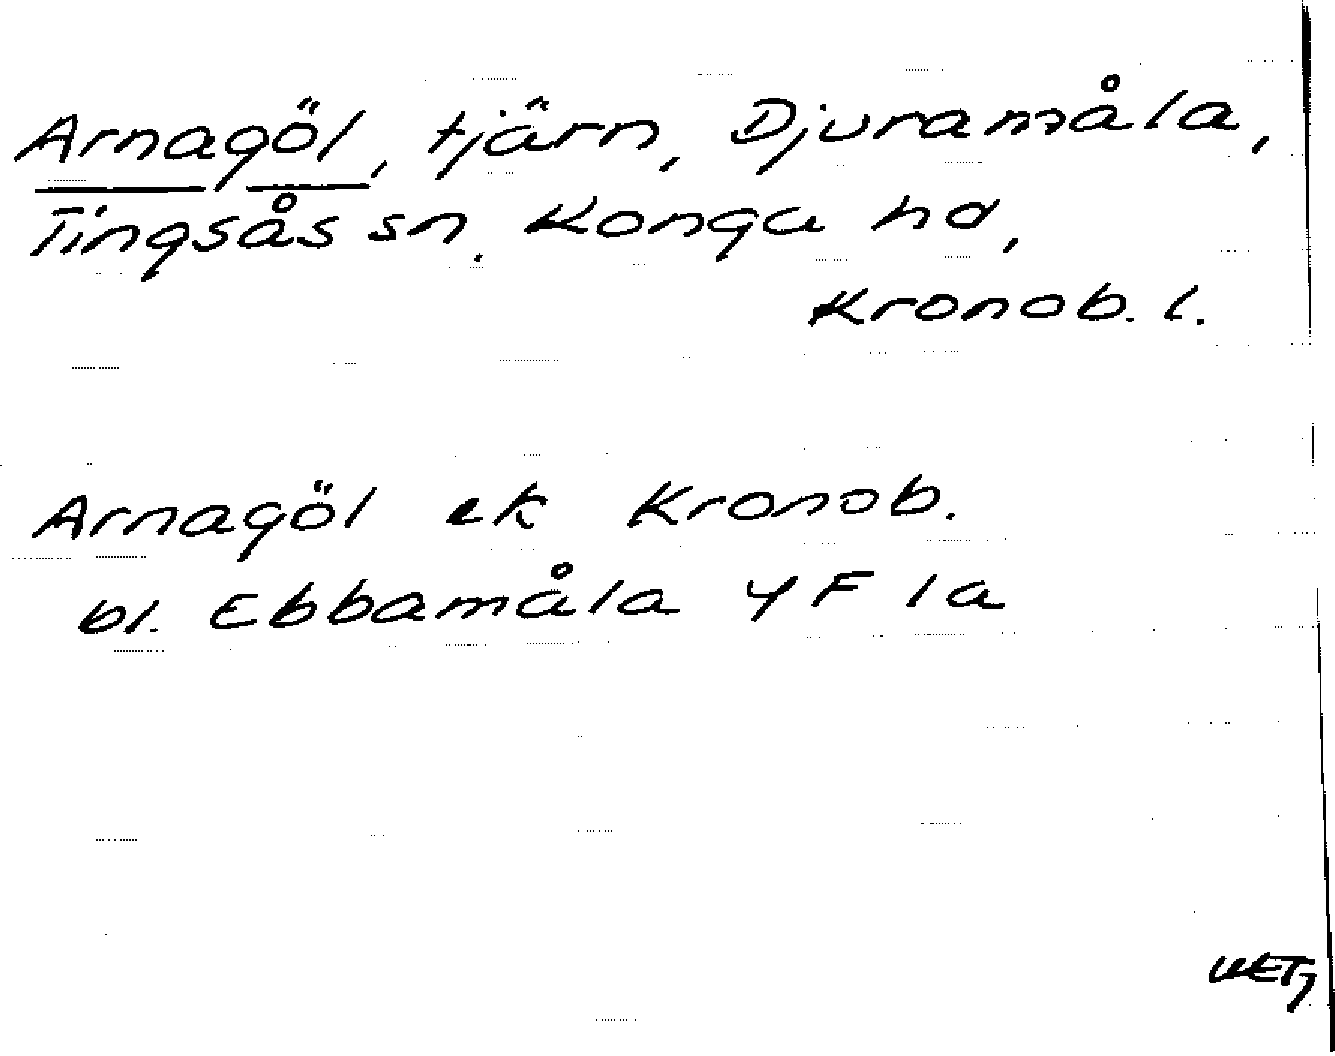 Arnagöl, tjärn, Djuramåla,
Tingsås sn, Konga hd,
Kronob. l.
Arnagöl ek Kronob.
bl. Ebbamåla 4 F 1a